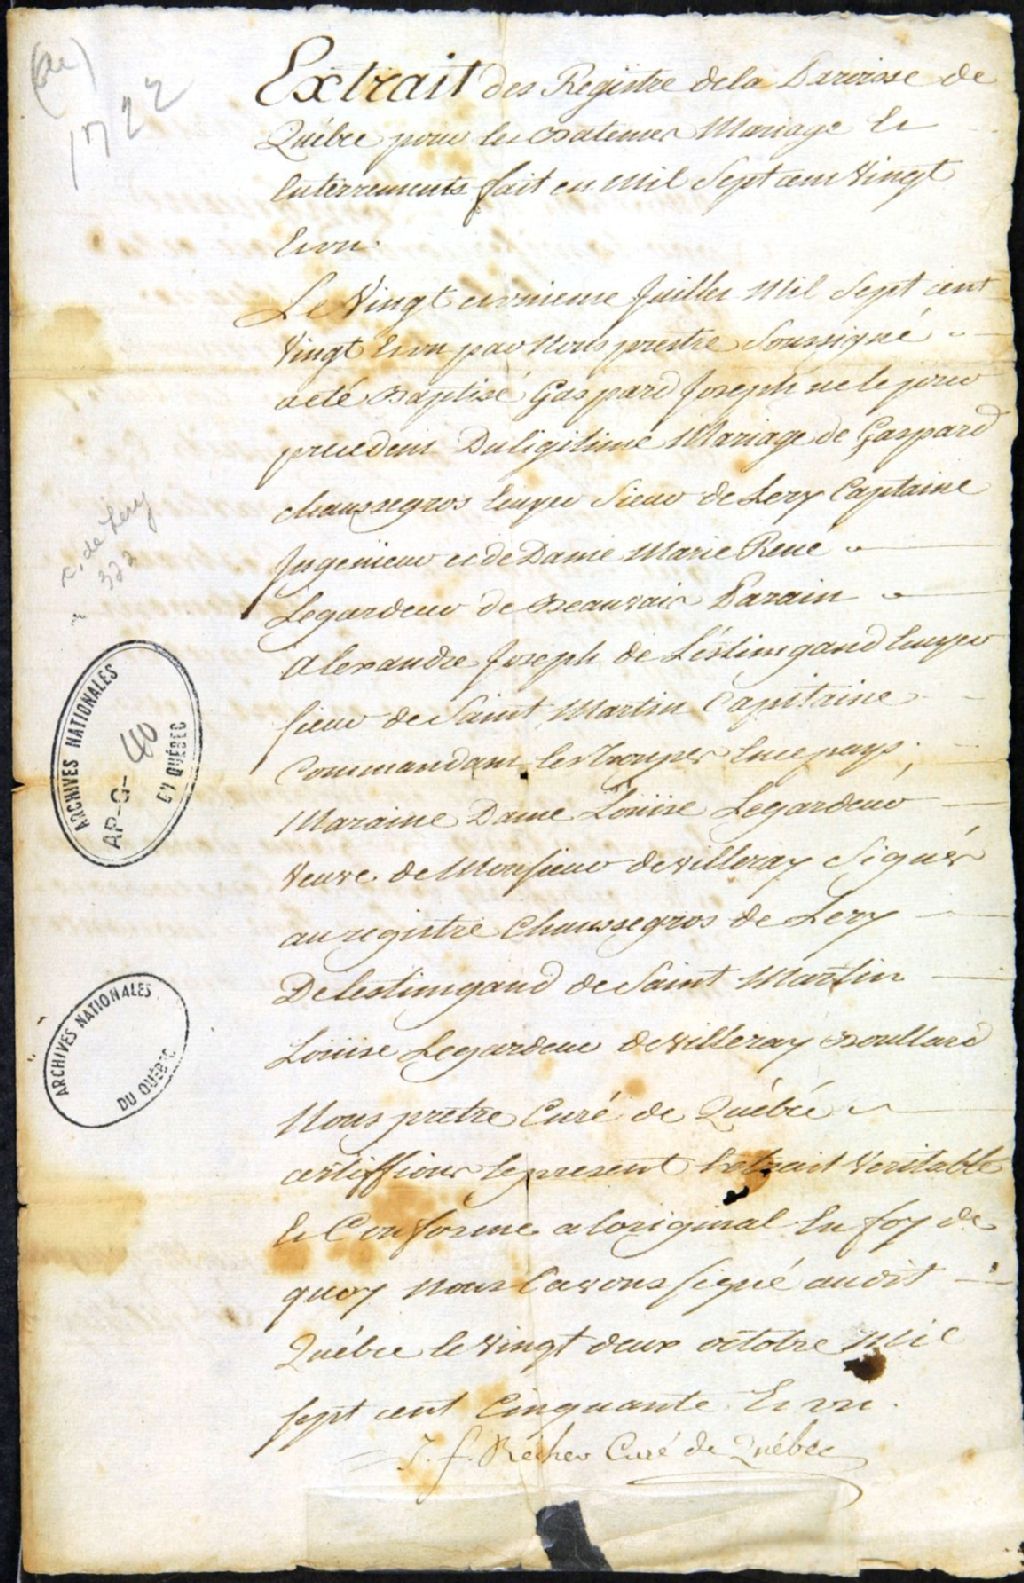 (de)
1722
Extrait des Registre dela Paroisse de
Québec pour les Batemes Mariage Et
Enterrements fait en Mil Sept cens Vingt
Et un.
Le Vingt et unieme Juillet Mil Sept cent
Vingt Et un par Nous prestre Soussigné
a eté Baptisé Gaspard Joseph né le jour
precedent Du legitime Mariage de Gaspard
chaussegros Ecuyer Sieur de Lery Captaine
Ingenieur et de Dame Marie René
Legardeur de Beauvais Parain
Alexandre Joseph de L'éstimgand Ecuyer
sieur de Saint Martin Capitaine
Commandant les troupes En ce pays ;
Maraine Dame Loüise Legardeur
Veuve de Monsieur de villeray Signés
au registre Chaussegros de Lery
De lestimgand de Saint Martin
Loüise Legardeur de villeray Boullard
Nous pretre Curé de Québéc
certiffions le present Extrait Veritable
Et Conforme a loriginal En foy de
quoy Nous L'avons signé audit
Québec le Vingt deux octobre Mil
sept cent Cinquante Et un.
J. f. Récher Curé de Québec
c. de Lery
322
ARCHIVES NATIONALES
AP-G- 40
DU QUÉBEC
ARCHIVES NATIONALES
DU QUÉBEC